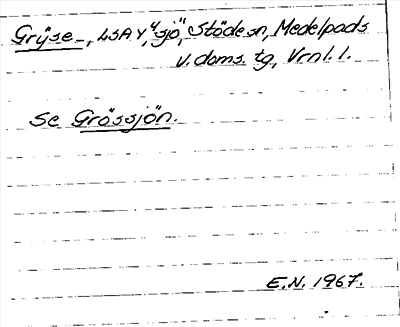 Grÿse, LSA Y, "sjö", Stöde sn, Medelpads
v. doms. tg, Vrnl. l.
Se Grössjön.
E.N. 1967.